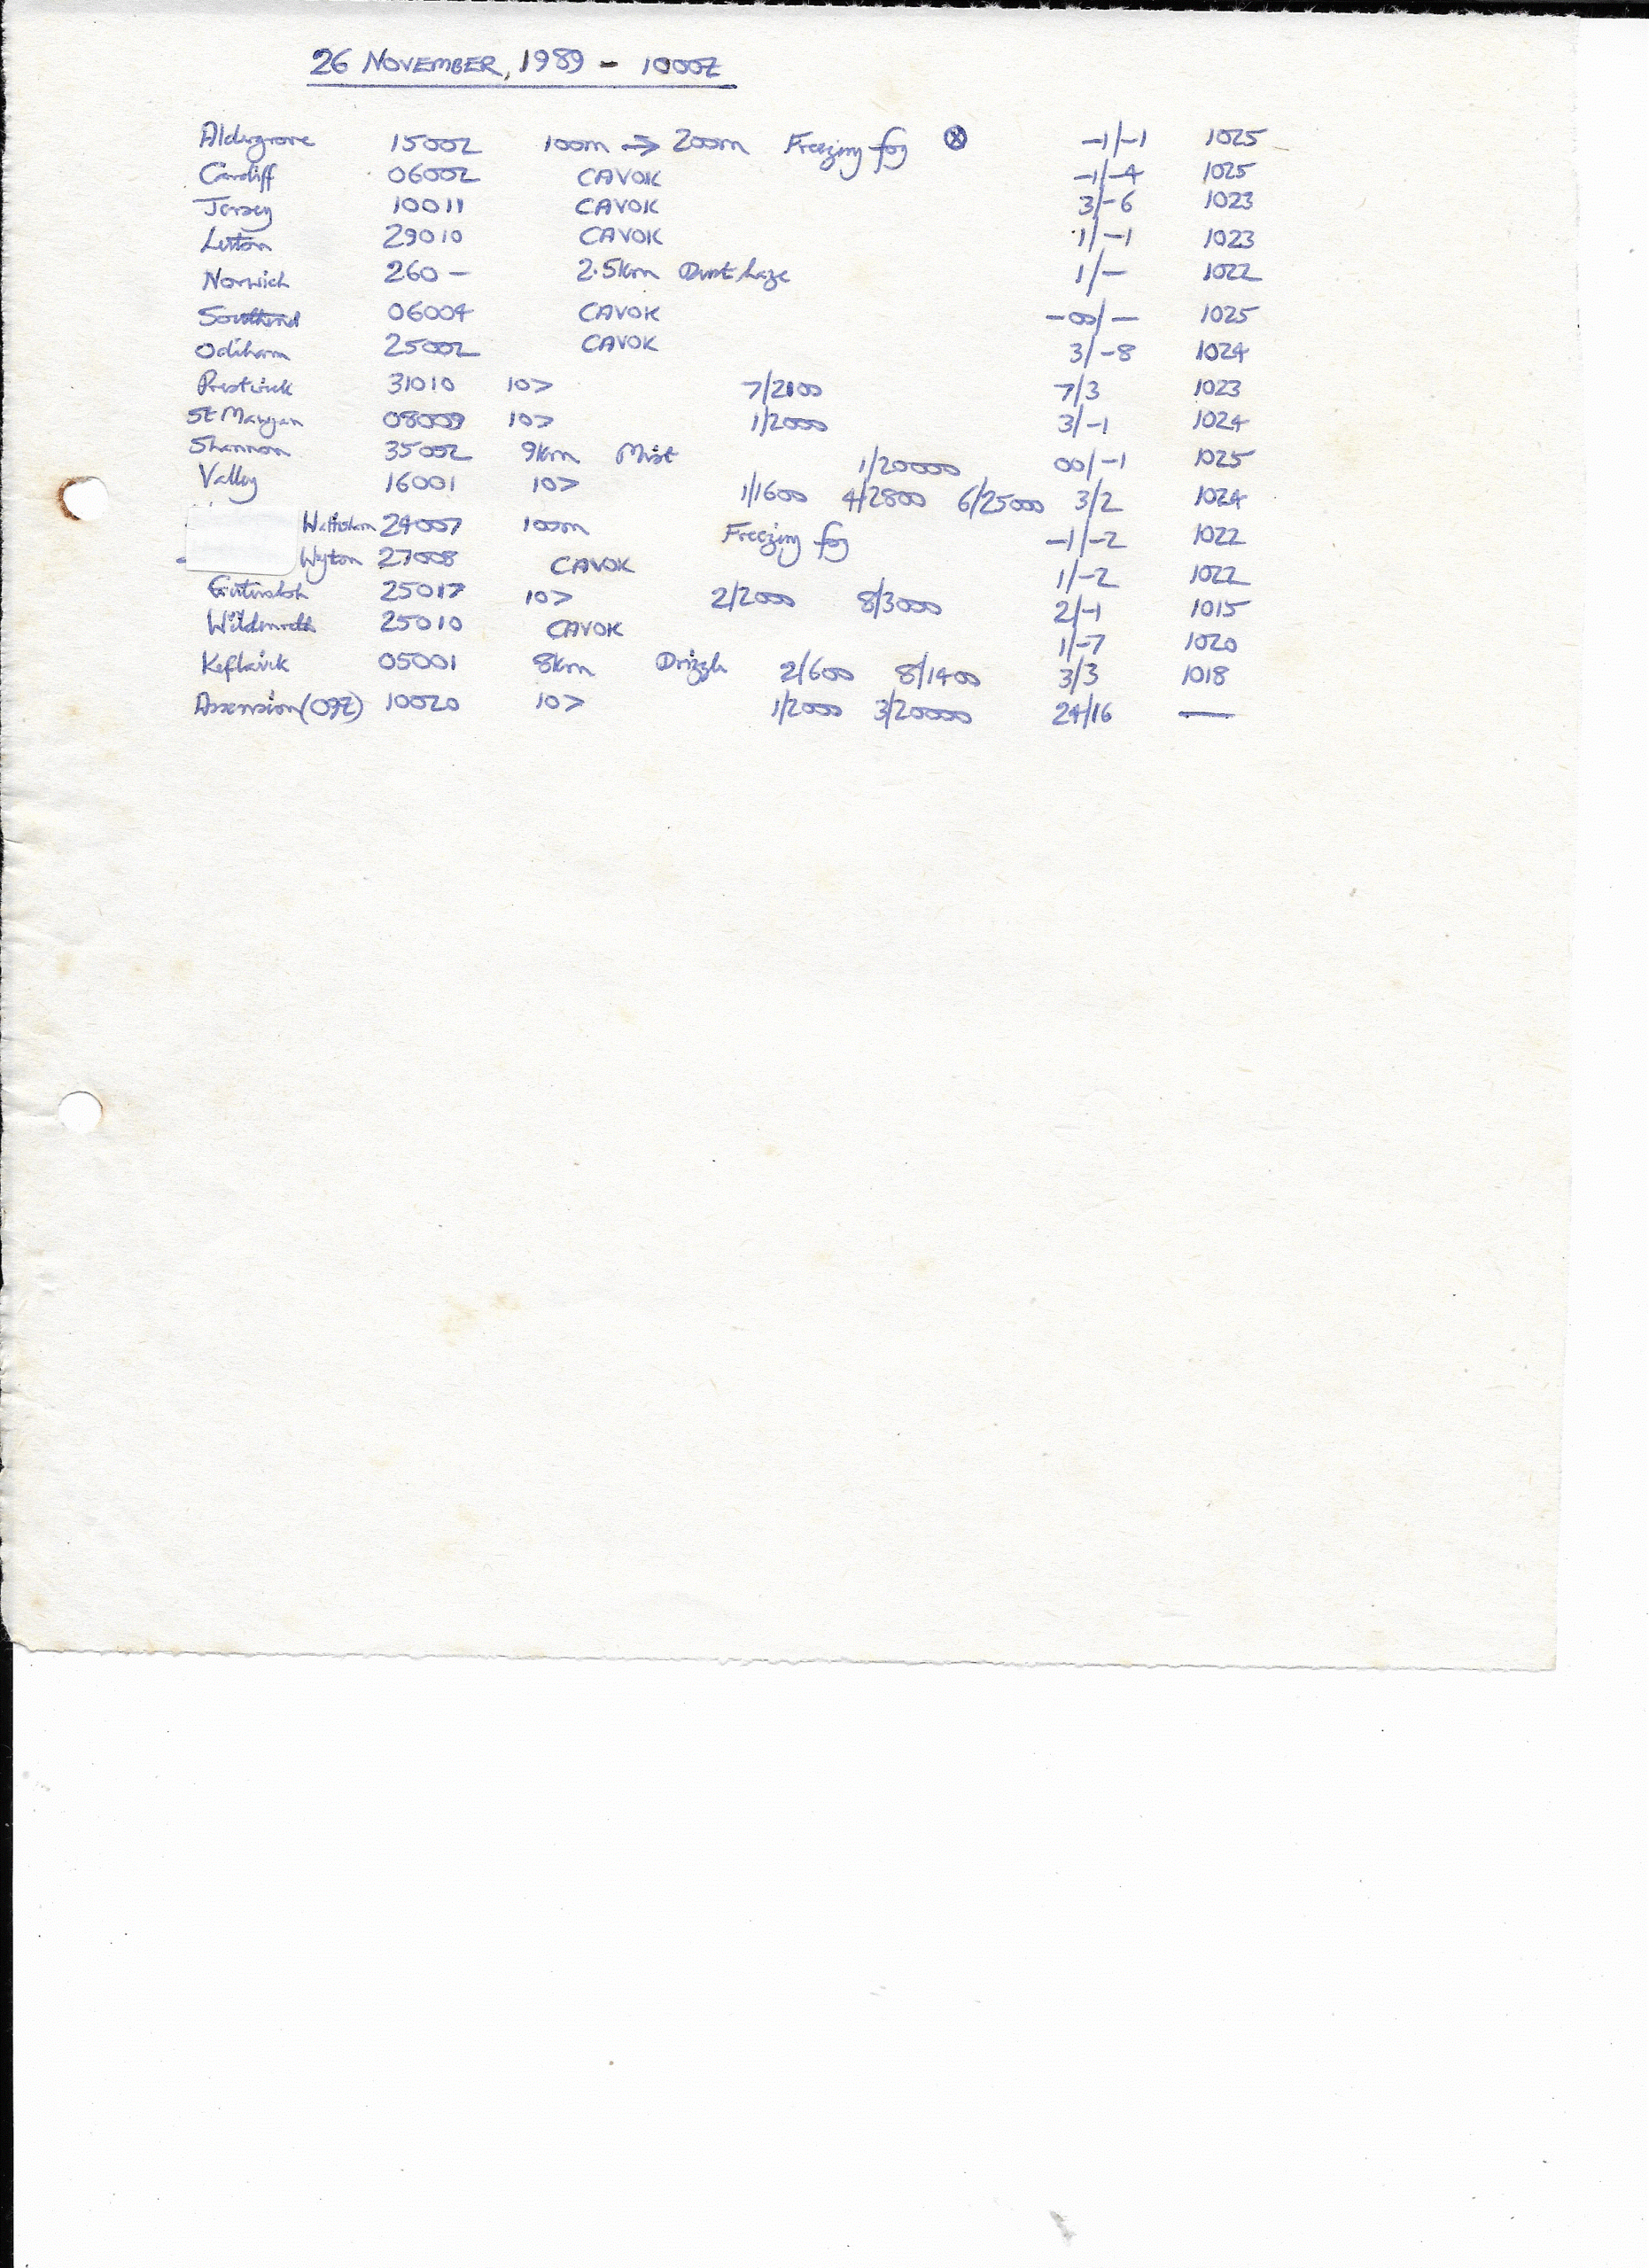 26 NOVEMBER, 1989 - 1000Z
Aldergrove 15002 100m → 200m Freezing fog ⊗ -1/-1 1025
Cardiff 06002 CAVOK -1/-4 1025
Jersey 10011 CAVOK 3/-6 1023
Luton 29010 CAVOK 1/-1 1023
Norwich 260- 2.5km Dust haze 1/- 1022
Southend 06004 CAVOK -00/- 1025
Odiham 25002 CAVOK 3/-8 1024
Prestwick 31010 10> 7/2100 7/3 1023
St Mawgan 08009 10> 1/2000 3/-1 1024
Shannon 35002 9km Mist 1/20000 00/-1 1025
Valley 16001 10> 1/1600 4/2800 6/25000 3/2 1024
Wattisham 24007 100m Freezing fog -1/-2 1022
Wyton 27008 CAVOK 1/-2 1022
Gutersloh 25017 10> 2/2000 8/3000 2/-1 1015
Wildenrath 25010 CAVOK 1/-7 1020
Keflavik 05001 8km Drizzle 2/600 8/1400 3/3 1018
Ascension (09Z) 10020 10> 1/2000 3/20000 24/16 —